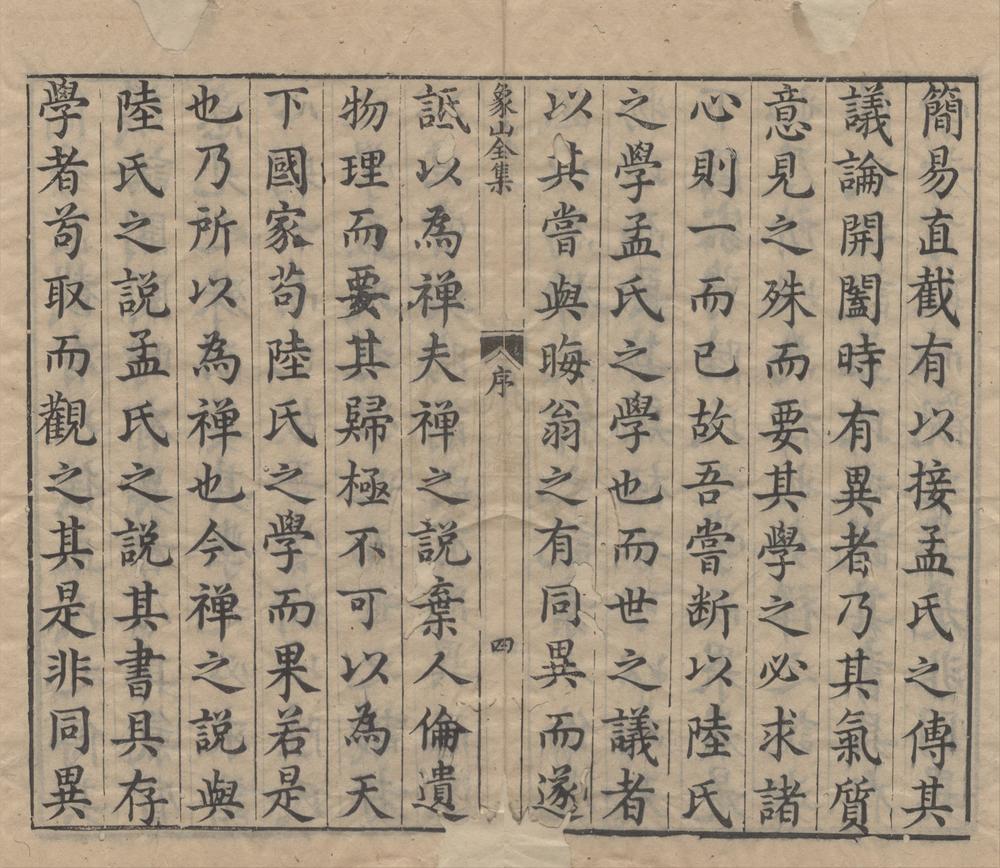 簡易直截有以接孟氏之傳其
議論開闔時有異者乃其氣質
意見之殊而要其學之必求諸
心則一而已故吾嘗断以陸氏
之學孟氏之學也而世之議者
以其嘗與晦翁之有同異而遂
象山全集
序
四
詆以為禅夫禅之説棄人倫遺
物理而要其歸極不可以為天
下國家苟陸氏之學而果若是
也乃所以為禅也今禅之説與
陸氏之説孟氏之説其書具存
學者苟取而觀之其是非同異